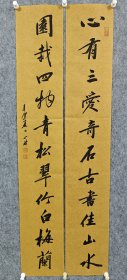 心有三爱奇石古书佳山水
園栽四物青松翠竹白梅蘭